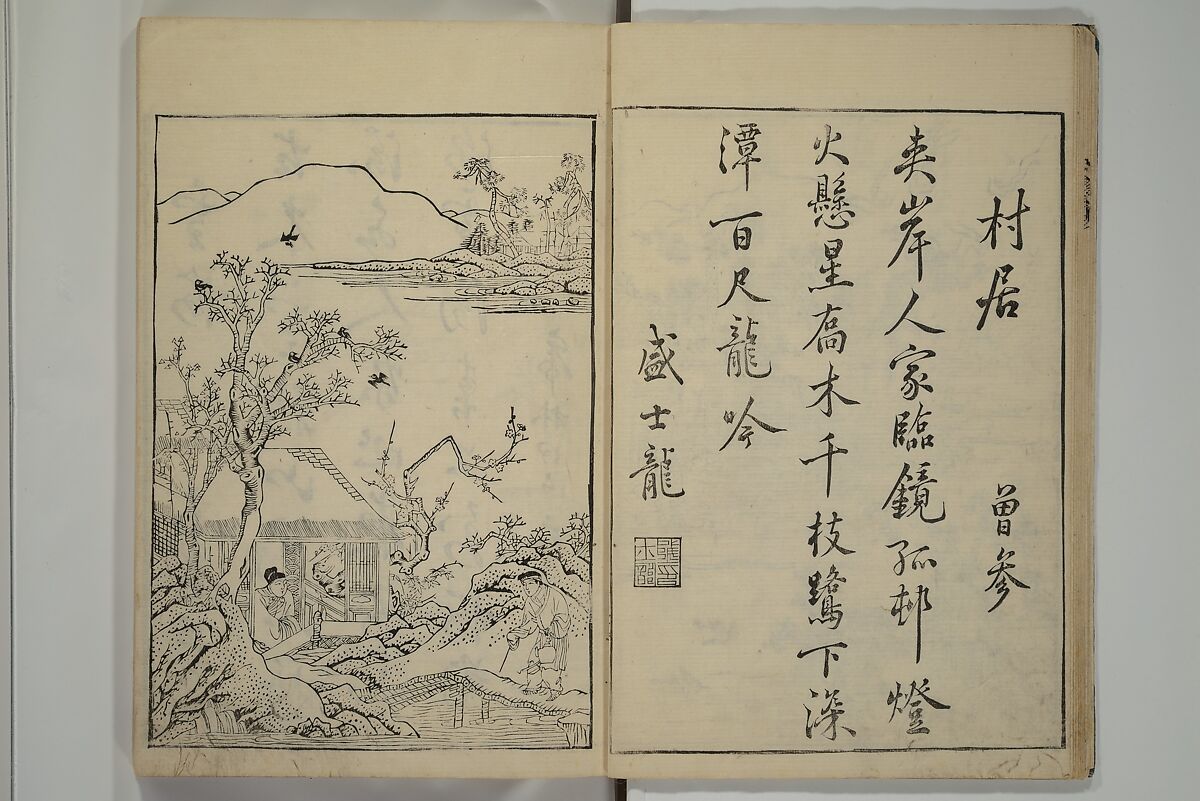 村居　曽参
夾岸人家臨鏡孤邨燈
火懸星喬木千枝鷺下深
潭百尺龍吟
盛士龍